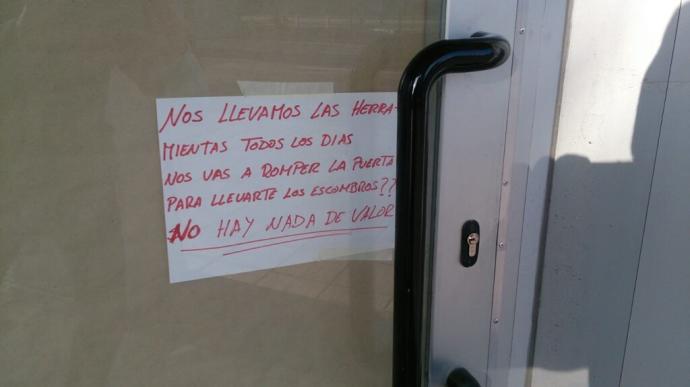 NOS LLEVAMOS LAS HERRA-
MIENTAS TODOS LOS DIAS
NOS VAS A ROMPER LA PUERTA
PARA LLEVARTE LOS ESCOMBROS??
NO HAY NADA DE VALOR